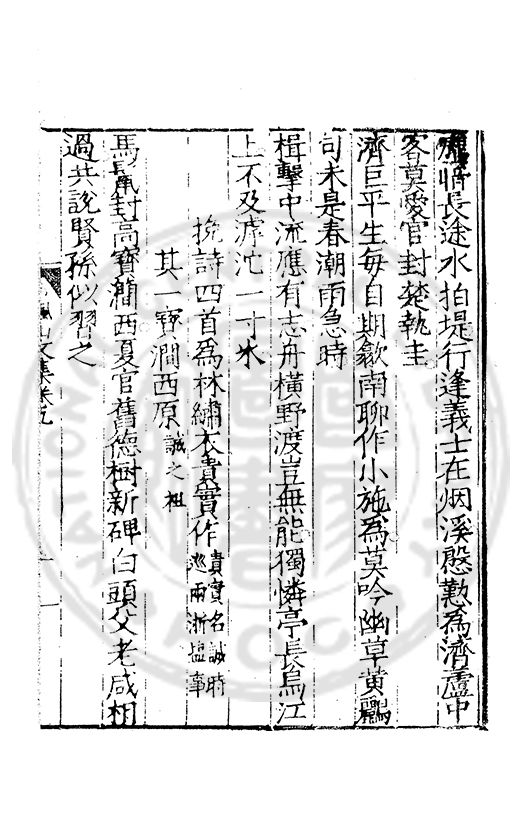 長途水拍堤行逢義士在烟溪慇懃為濟蘆中
客莫愛官封楚執圭
濟巨平生每自期歙南聊作小施為莫吟幽草黃鸝
句未是春潮雨急時
楫擊中流應有志舟橫野渡豈無能獨憐亭長烏江
上不及滹沱一寸氷
挽詩四首為林繡衣貴實作貴實名誠時
巡兩浙塩事
其一寳澗西原誠之祖
馬鬛封高寳澗西夏官舊德樹新碑白頭父老咸相
過共說賢孫似習之
楓山文集卷九